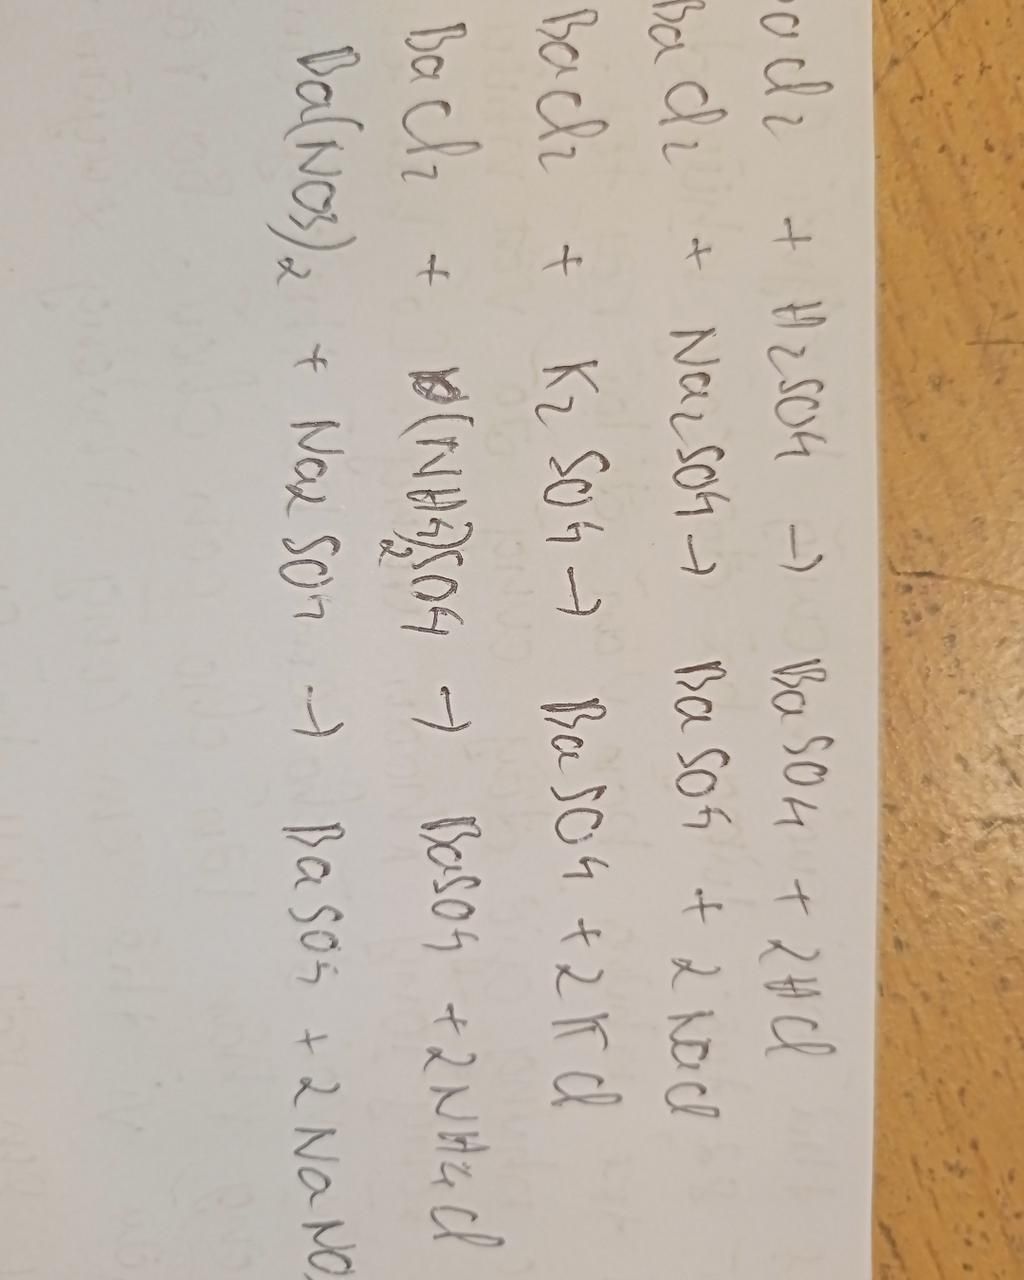 BaCl2 + H2SO4 → BaSO4 + 2HCl
BaCl2 + Na2SO4 → BaSO4 + 2NaCl
BaCl2 + K2SO4 → BaSO4 + 2KCl
BaCl2 + (NH4)2SO4 → BaSO4 + 2NH4Cl
Ba(NO3)2 + Na2SO4 → BaSO4 + 2NaNO